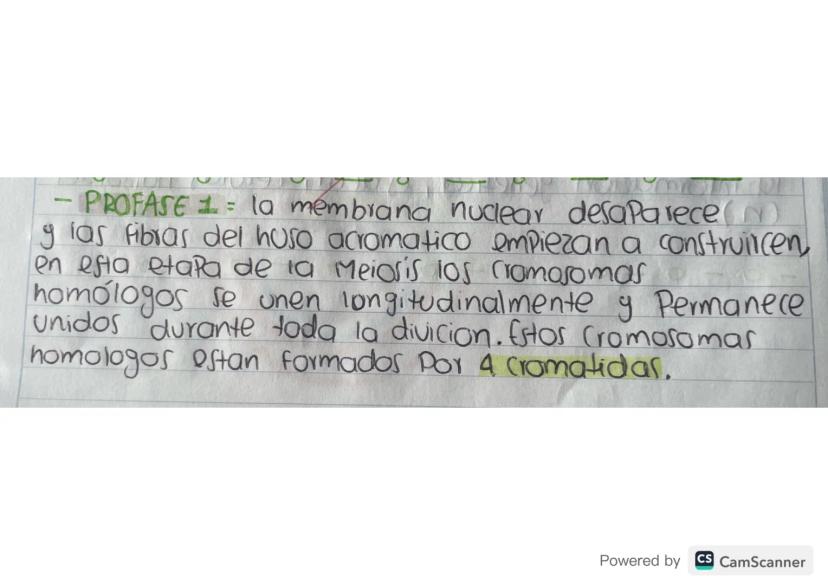 - PROFASE 1 = la membrana nuclear desaparece
y las fibras del huso acromatico empiezan a construircen,
en esta etapa de la Meiosis los cromosomas
homólogos se unen longitudinalmente y Permanece
unidos durante toda la divicion. Estos cromosomas
homologos estan formados por 4 cromatidas.
Powered by CS CamScanner